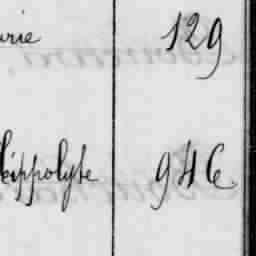 urie 129
Hippolyte 946